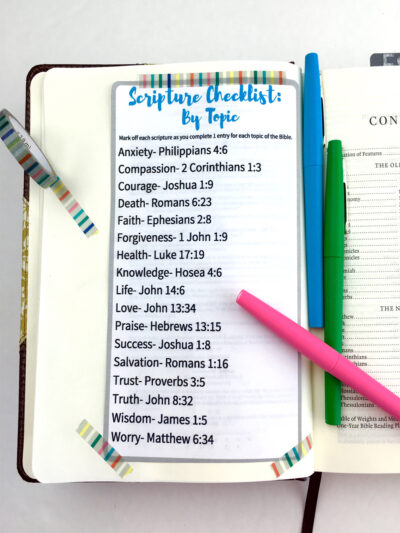 Scripture Checklist:
By Topic
Mark off each scripture as you complete 1 entry for each topic of the Bible.
Anxiety- Philippians 4:6
Compassion- 2 Corinthians 1:3
Courage- Joshua 1:9
Death- Romans 6:23
Faith- Ephesians 2:8
Forgiveness- 1 John 1:9
Health- Luke 17:19
Knowledge- Hosea 4:6
Life- John 14:6
Love- John 13:34
Praise- Hebrews 13:15
Success- Joshua 1:8
Salvation- Romans 1:16
Trust- Proverbs 3:5
Truth- John 8:32
Wisdom- James 1:5
Worry- Matthew 6:34
CON
of Features
THE OL
THE N
Table of Weights and Me
One-Year Bible Reading Pla